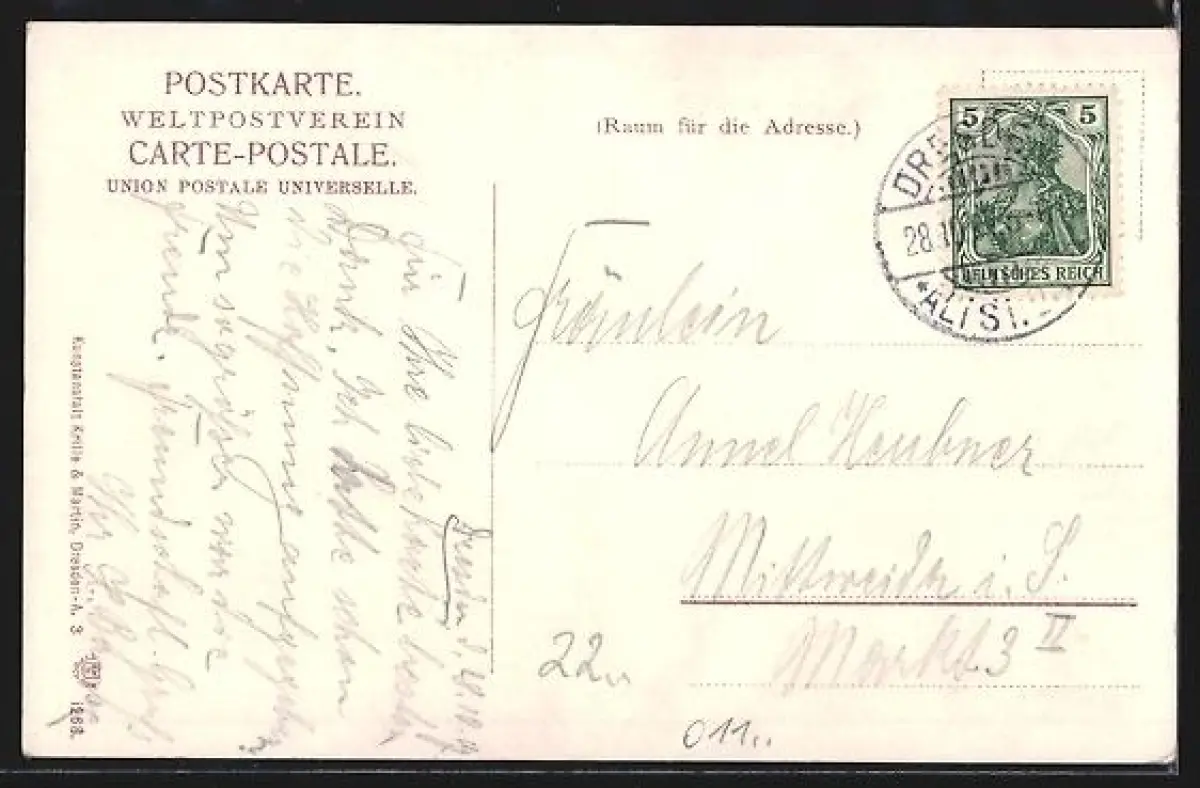 POSTKARTE.
WELTPOSTVEREIN
CARTE-POSTALE.
UNION POSTALE UNIVERSELLE.
(Raum für die Adresse.)
5 5
DEUTSCHES REICH
DRESDEN
28.10
*ALTST.
Fräulein
Annel Heubner
Mittweida i. S.
Markt 3 II
Dresden, d. 28.10.
Für Ihre liebe Karte besten
Dank, Ich hatte schon
die Hoffnung aufgegeben
Freunde. Freundschaftl. Gruß
Ihr
22
011
Kunstanstalt Krille & Martin, Dresden-A. 3
1268.